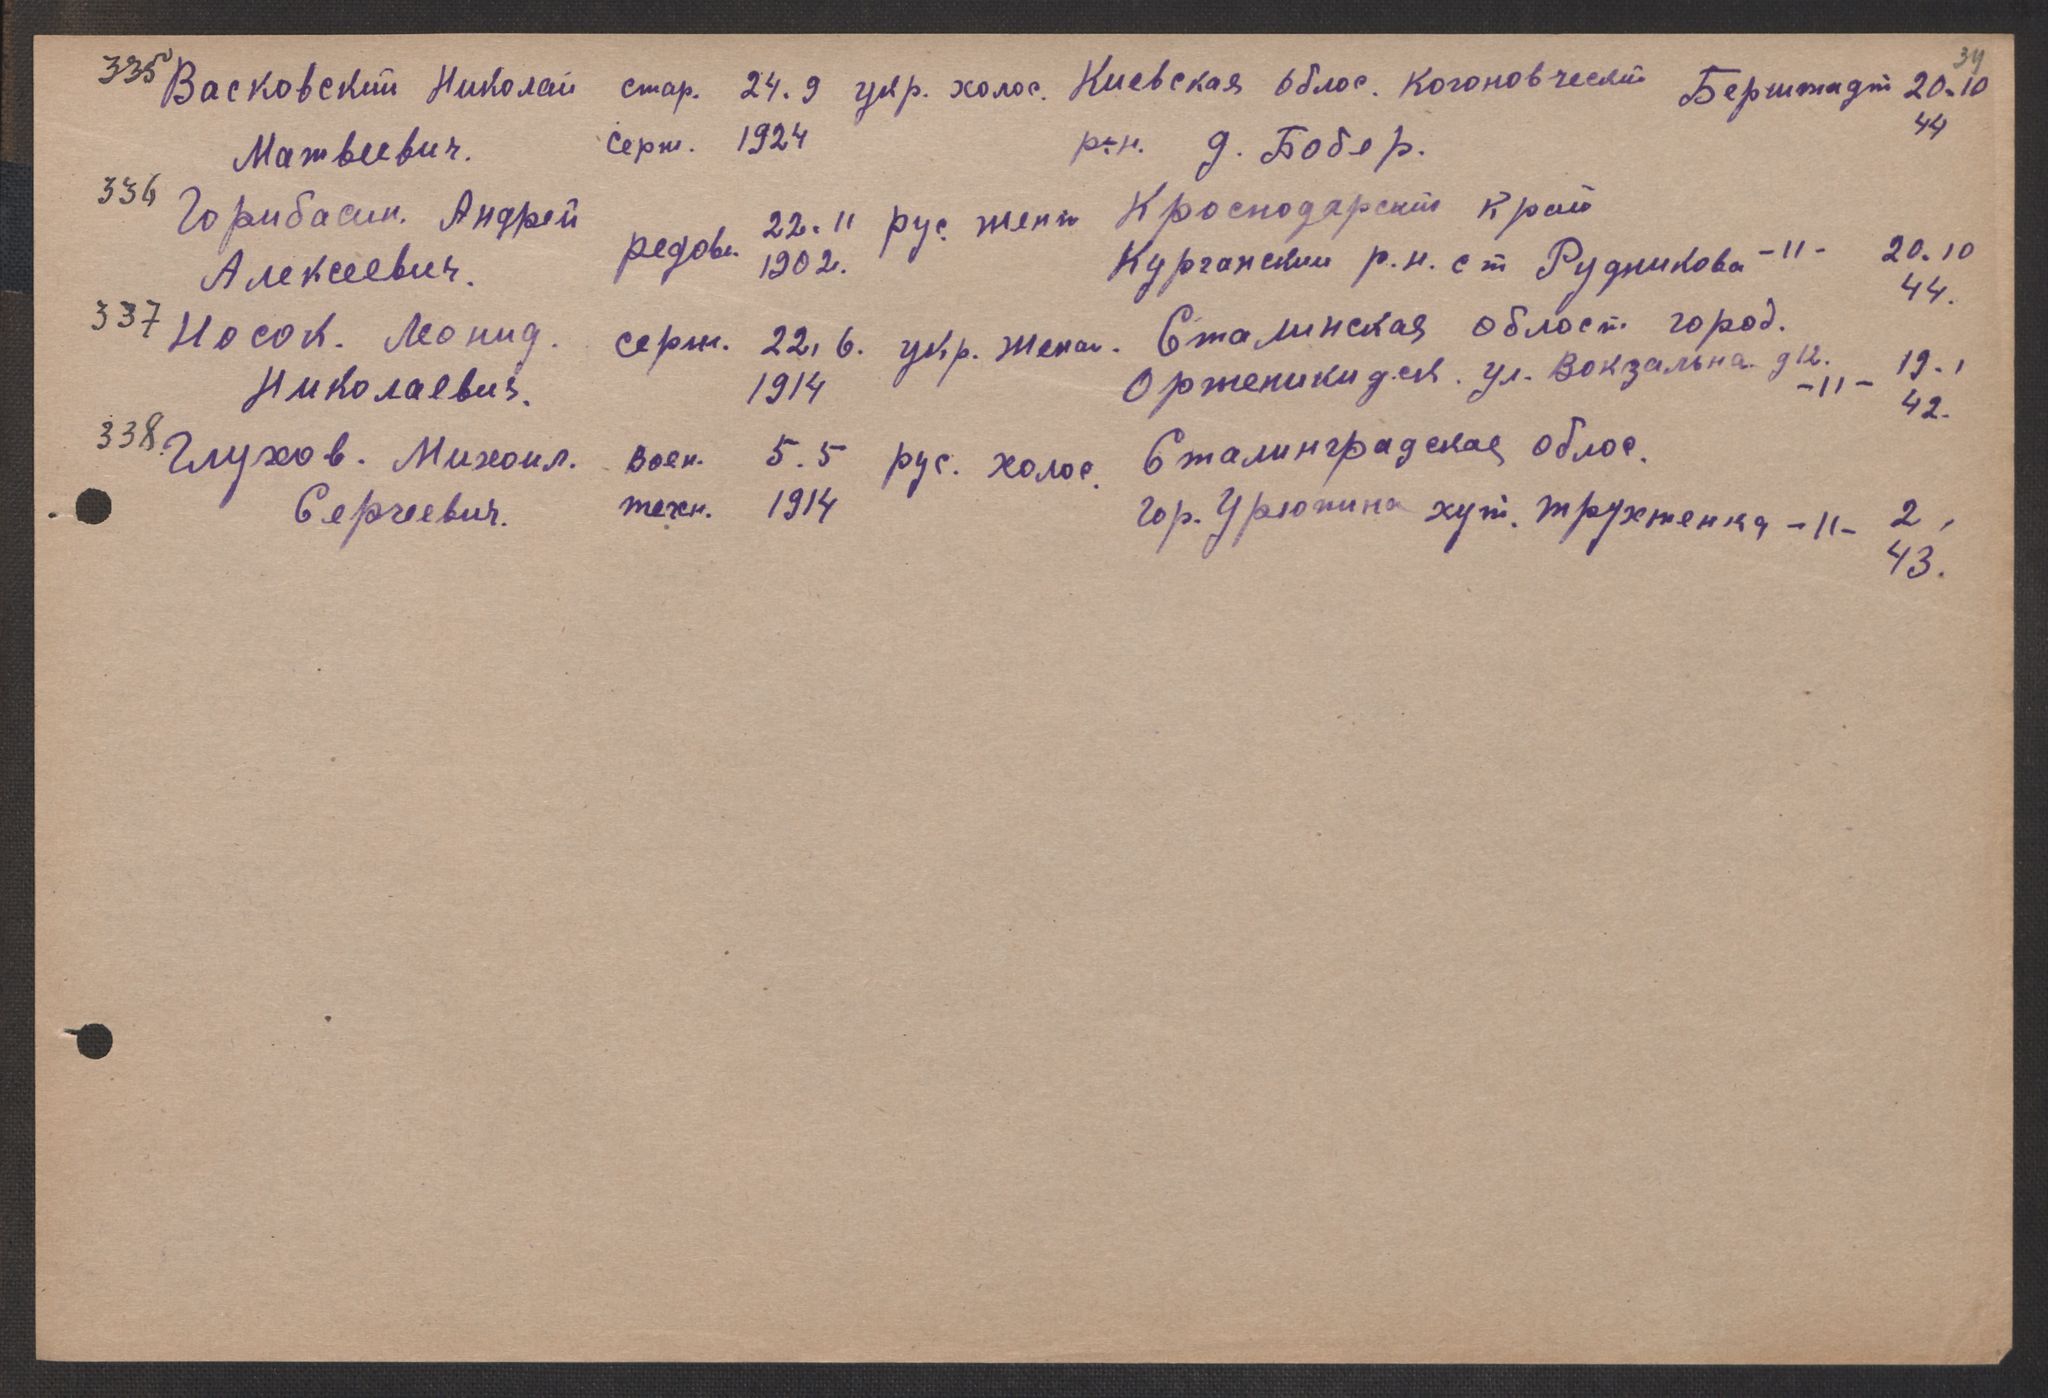 34
335 Васковский Николай стар. 24.9 укр. холос. Киевская облос. Когоновический Берштадт 20.10
Матвеевич. серж. 1924 р-н. д. Бобер. 44
336 Горибасин. Андрей рус. женат Кроснодарский край
Алексеевич. редов. 22.11 1902. Курганский р.н. ст Рудникова -11- 20.10 44.
337 Носок. Леонид. серж. 22.6. укр. женат. Сталинская област. город.
Николаевич. 1914 Орженикидск. ул. Вокзальна. д12. -11- 19.1 42.
338. Глухов. Михоил. воен. 5.5 рус. холос. Сталинградская облос.
Сергеевич. техн. 1914 гор. Урюпина хут. -11- 2, 43.